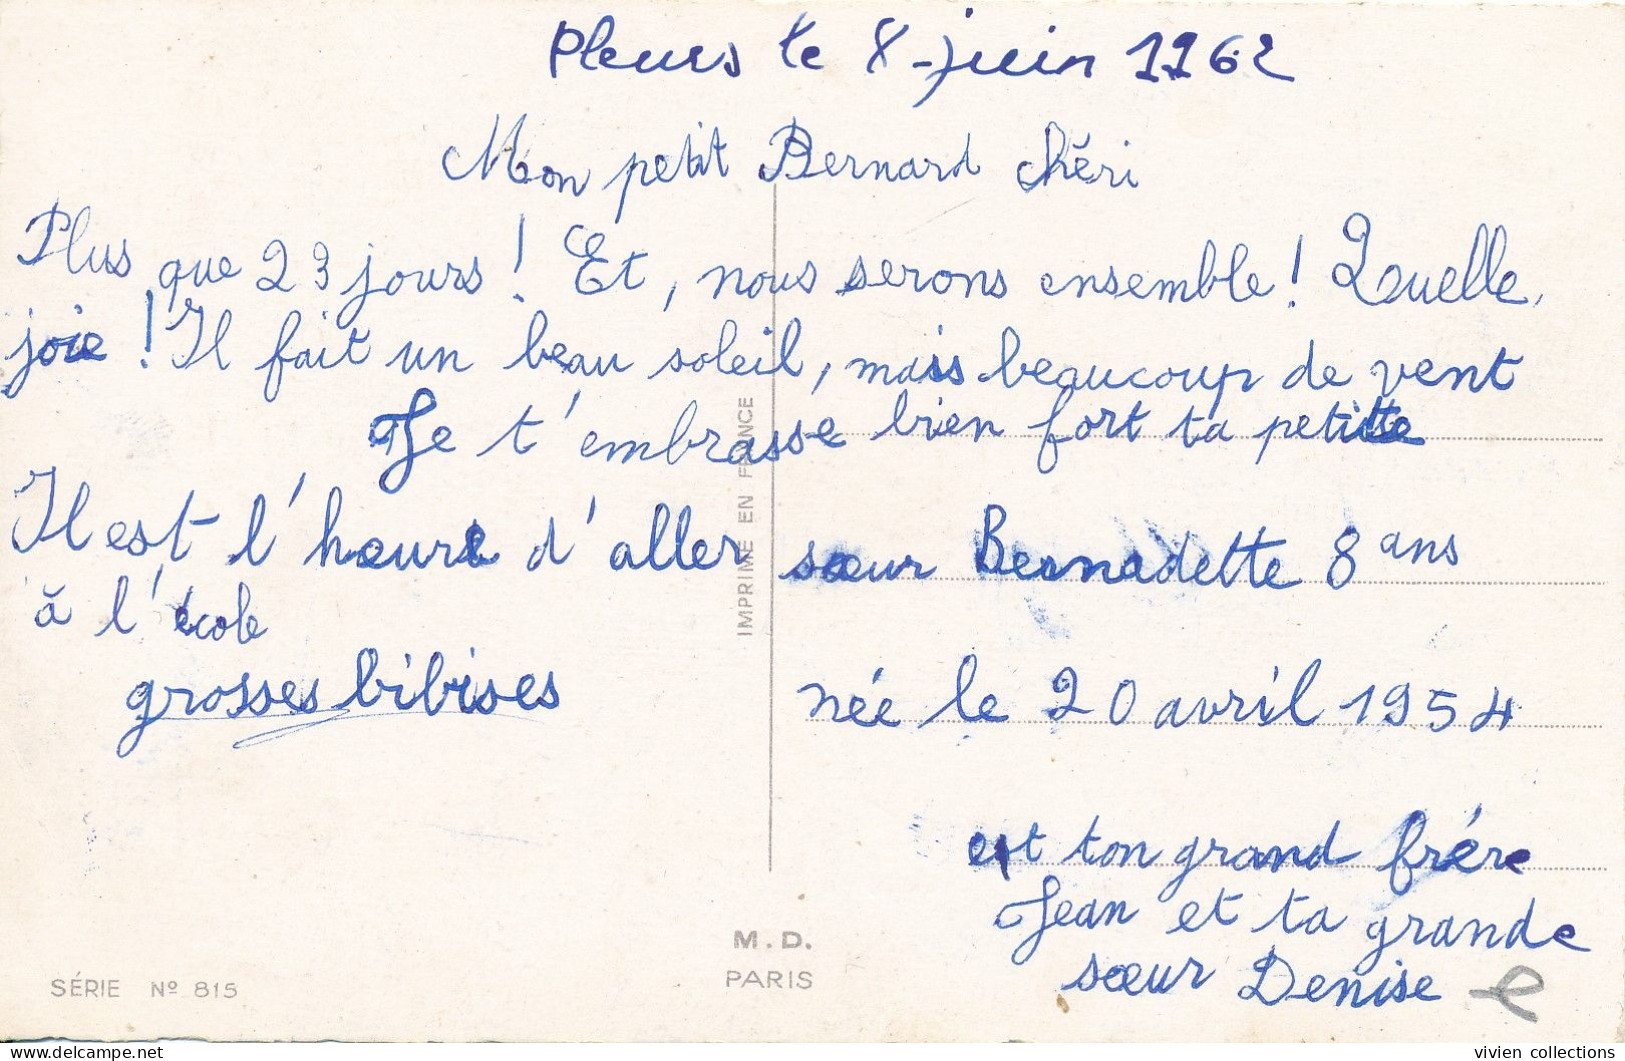 Pleurs le 8 juin 1962
Mon petit Bernard chéri
Plus que 23 jours ! Et, nous serons ensemble ! Quelle
joie ! Il fait un beau soleil, mais beaucoup de vent
Je t'embrasse bien fort ta petite
Il est l'heure d'aller
à l'école
grosses bibises
sœur Bernadette 8 ans
née le 20 avril 1954
est ton grand frére
Jean et ta grande
sœur Denise
IMPRIMÉ EN FRANCE
M. D.
PARIS
SÉRIE Nº 815
vivien collections